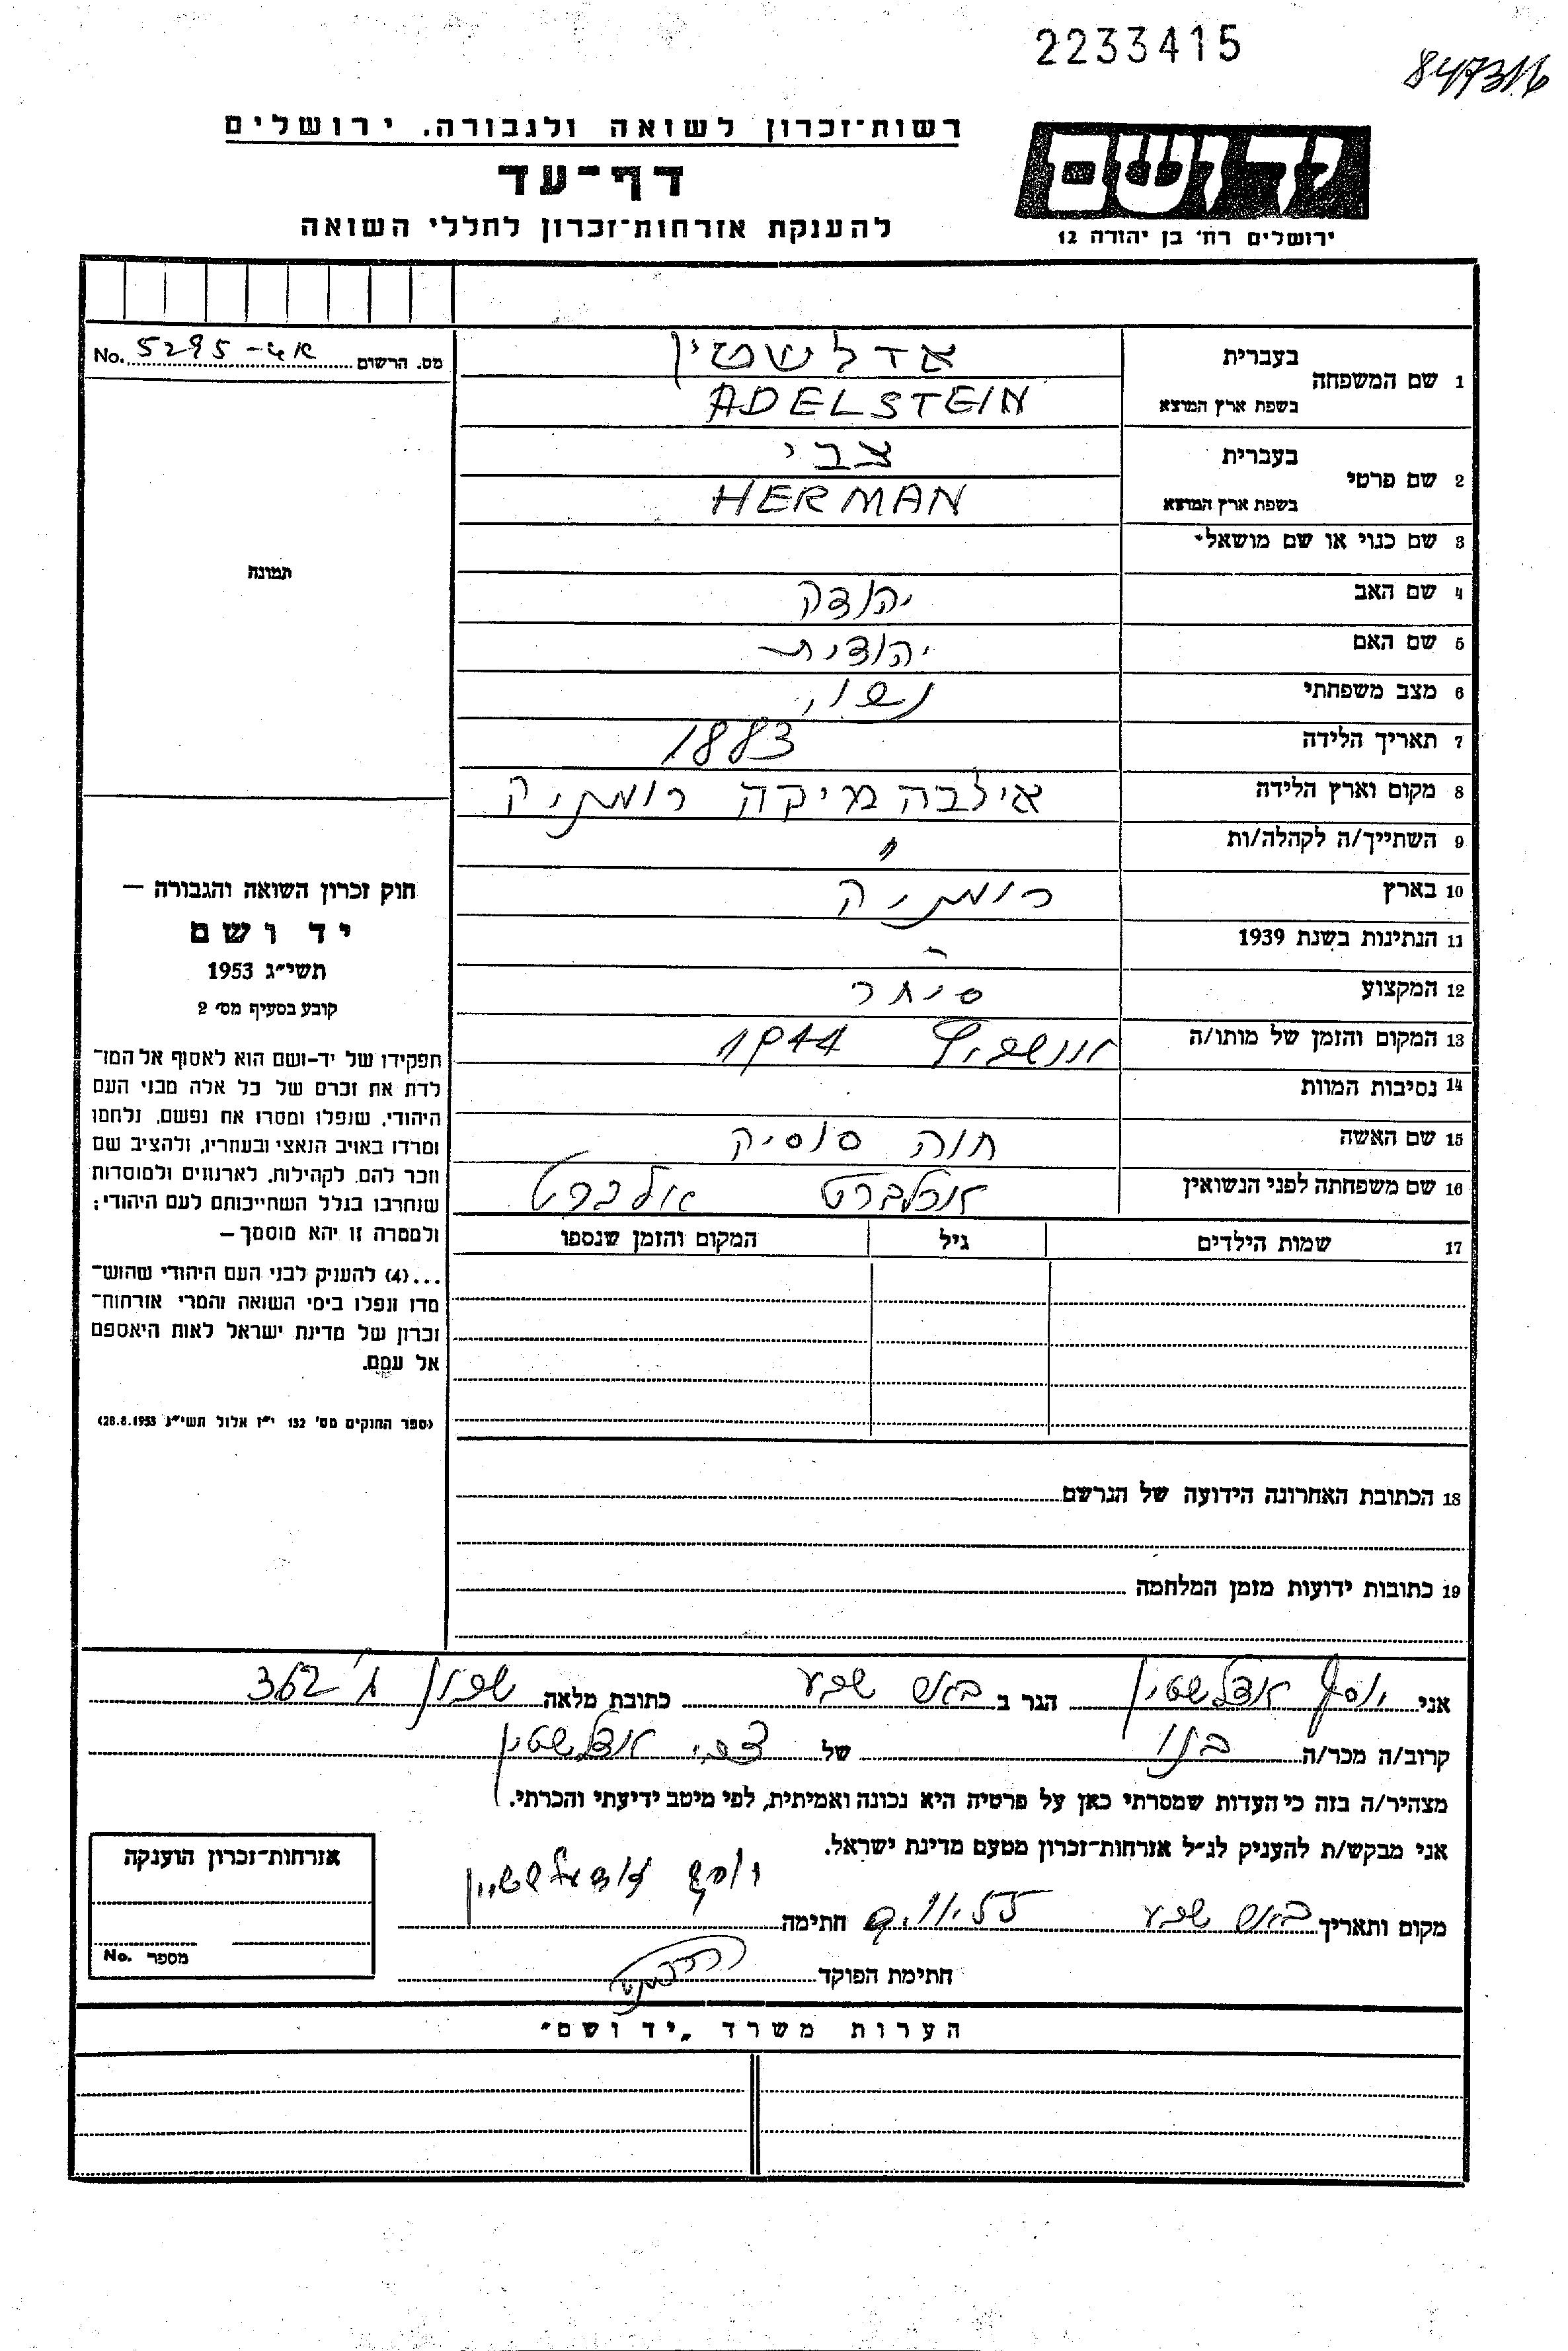 2233415
847316
רשות־זכרון לשואה ולגבורה, ירושלים
דף־עד
להענקת אזרחות־זכרון לחללי השואה
יד ושם
ירושלים רח׳ בן יהודה 12
מס. הרשום 5295 No.
1 שם המשפחה
בעברית אדלשטין
בשפת ארץ המוצא ADELSTEIN
2 שם פרטי
בעברית צבי
בשפת ארץ המוצא HERMAN
3 שם כנוי או שם מושאל
4 שם האב יהודה
5 שם האם יהודית
6 מצב משפחתי נשוי
7 תאריך הלידה 1883
8 מקום וארץ הלידה אילבה מיקה רומניה
9 השתייך/ה לקהלה/ות "
10 בארץ רומניה
11 הנתינות בשנת 1939
12 המקצוע סוחר
13 המקום והזמן של מותו/ה אושביץ 1944
14 נסיבות המוות
15 שם האשה חוה
16 שם משפחתה לפני הנשואין אלברט
17 שמות הילדים גיל המקום והזמן שנספו
18 הכתובת האחרונה הידועה של הנרשם
19 כתובות ידועות מזמן המלחמה
תמונה
חוק זכרון השואה והגבורה —
יד ושם
תשי״ג 1953
קובע בסעיף מס׳ 2
תפקידו של יד-ושם הוא לאסוף אל המו־
לדת את זכרם של כל אלה מבני העם
היהודי, שנפלו ומסרו את נפשם, נלחמו
ומרדו באויב הנאצי ובעוזריו, ולהציב שם
וזכר להם, לקהילות, לארגונים ולמוסדות
שנחרבו בגלל השתייכותם לעם היהודי;
ולמטרה זו יהא מוסמך —
...(4) להעניק לבני העם היהודי שהוש־
מדו ונפלו בימי השואה והמרי אזרחות־
זכרון של מדינת ישראל לאות היאספם
אל עמם.
(ספר החוקים מס׳ 132 י״ז אלול תשי״ג 28.8.1953)
אני יוסף אדלשטין הגר ב באר שבע כתובת מלאה שכון ג׳ 362
קרוב/ה מכר/ה בנו של צבי אדלשטין
מצהיר/ה בזה כי העדות שמסרתי כאן על פרטיה היא נכונה ואמיתית, לפי מיטב ידיעתי והכרתי.
אני מבקש/ת להעניק לנ״ל אזרחות־זכרון מטעם מדינת ישראל.
מקום ותאריך באר שבע חתימה
חתימת הפוקד
אזרחות־זכרון הוענקה
מספר No.
הערות משרד „יד ושם״